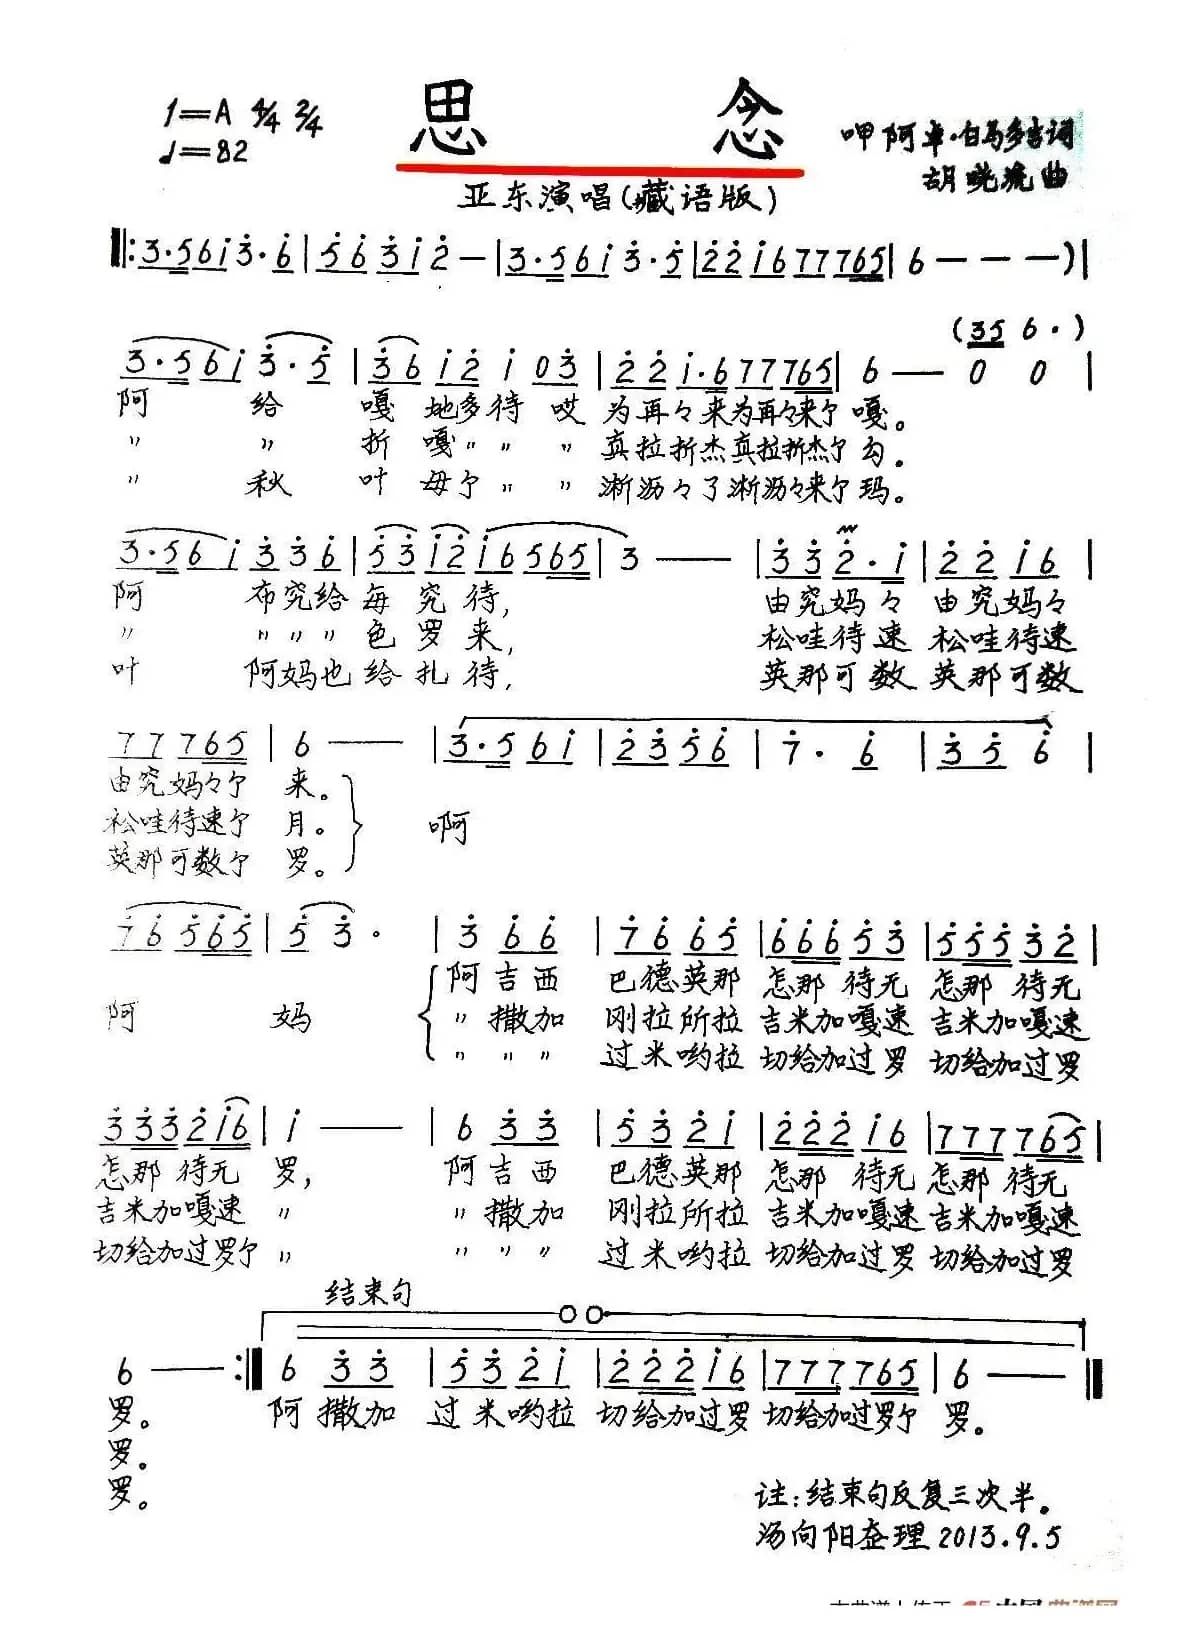 思 念
1=A 4/4 2/4
♩=82
呷阿卓·白马多吉词
胡晓流曲
亚东演唱(藏语版)
‖: 3·561̇3̇·6̇ | 5̇6̇3̇1̇2̇— | 3·561̇3̇·5 | 2̇2̇1̇677765 | 6———)|
(35 6·)
3·561̇3̇·5̇ | 3̇61̇2̇1̇03̇ | 2̇2̇1̇·677765 | 6—00 |
阿 给 嘎 地多待 哎 为再々来为再々来尔 嘎。
〃 〃 折 嘎〃 〃 〃 真拉折杰真拉折杰尔 勾。
〃 秋 叶 母尔〃 〃 淅沥々了淅沥々来尔 玛。
3·561̇3̇3̇6̇ | 5̇3̇1̇2̇1̇6565 | 3—— | 3̇3̇2̇·1̇ | 2̇2̇1̇6 |
阿 布究给 每 究 待, 由究妈々 由究妈々
〃 〃〃〃 色 罗 来, 松哇待速 松哇待速
叶 阿妈也 给 扎 待, 英那可数 英那可数
77765 | 6—— | 3·561̇ | 2̇3̇5̇6̇ | 7̇·6̇ | 3̇5̇6̇ |
由究妈々尔 来。
松哇待速尔 月。 啊
英那可数尔 罗。
7̇6̇5̇6̇5̇ | 5̇3̇· | 3̇6̇6̇ | 7̇6̇6̇5̇ | 6̇6̇6̇5̇3̇ | 5̇5̇5̇3̇2̇ |
阿吉西 巴德英那 怎那 待无 怎那 待无
阿 妈 〃撒加 刚拉所拉 吉米加嘎速 吉米加嘎速
〃〃〃 过米哟拉 切给加过罗 切给加过罗
3̇3̇3̇2̇1̇6 | 1̇—— | 63̇3̇ | 5̇3̇2̇1̇ | 2̇2̇2̇1̇6 | 777765 |
怎那 待无 罗, 阿吉西 巴德英那 怎那 待无 怎那 待无
吉米加嘎速 〃 〃撒加 刚拉所拉 吉米加嘎速 吉米加嘎速
切给加过罗尔 〃 〃〃〃 过米哟拉 切给加过罗 切给加过罗
结束句
6—— :‖ 63̇3̇ | 5̇3̇2̇1̇ | 2̇2̇2̇1̇6 | 777765 | 6—— ‖
罗。 阿撒加 过米哟拉 切给加过罗 切给加过罗尔 罗。
罗。
罗。
注:结束句反复三次半。
汤向阳整理2013.9.5